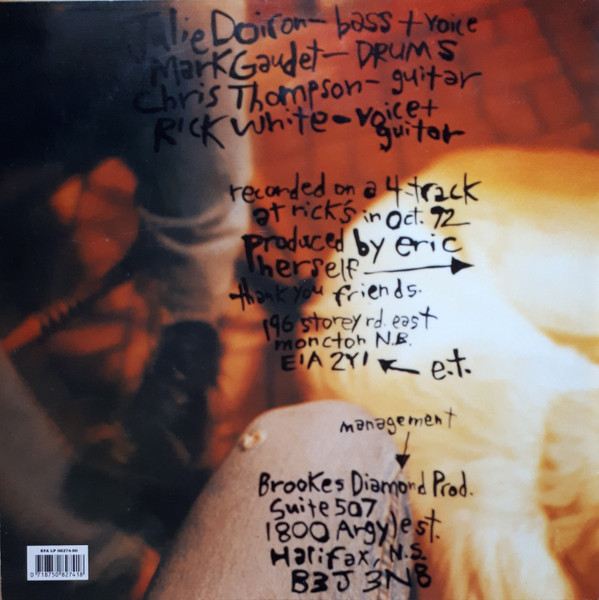 Julie Doiron - bass + voice
Mark Gaudet - DRUMS
Chris Thompson - guitar
Rick White - voice +
guitar
recorded on a 4-track
at rick's in Oct. 92
produced by eric
herself
thank you friends.
196 storey rd. east
moncton N.B.
E1A 2Y1 e.t.
management
Brookes Diamond Prod.
Suite 507
1800 Argyle st.
Halifax, N.S.
B3J 3N8
EFA LP 08274-08
0 718750 827418